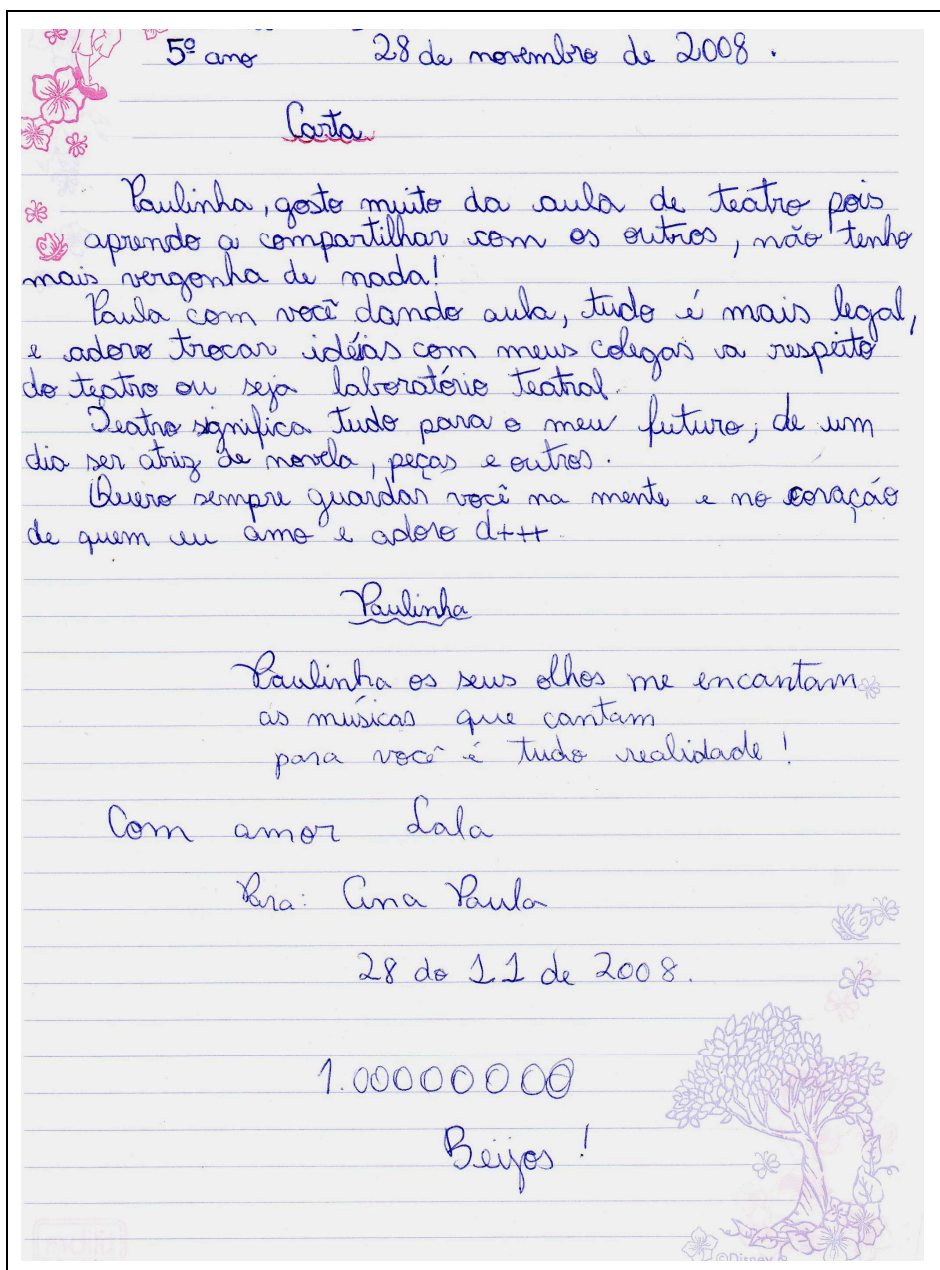 5º ano 28 de novembro de 2008.
Carta
Paulinha, gosto muito da aula de teatro pois
aprendo a compartilhar com os outros, não tenho
mais vergonha de nada!
Paula com você dando aula, tudo é mais legal,
e adoro trocar idéias com meus colegas a respeito
do teatro ou seja laboratório teatral.
Teatro significa tudo para o meu futuro, de um
dia ser atriz de novela, peças e outros.
Quero sempre guardar você na mente e no coração
de quem eu amo e adoro d+++
Paulinha
Paulinha os seus olhos me encantam
as músicas que cantam
para você é tudo realidade!
Com amor Lala
Para: Ana Paula
28 do 11 de 2008.
1.00000000
Beijos!
©Disney